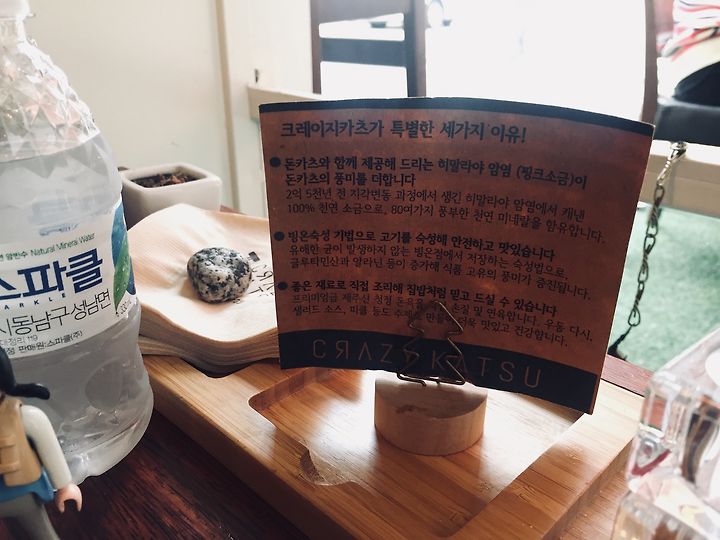 크레이지카츠가 특별한 세가지 이유!
● 돈카츠와 함께 제공해 드리는 히말라야 암염 (핑크소금)이
돈카츠의 풍미를 더합니다
2억 5천년 전 지각변동 과정에서 생긴 히말라야 암염에서 캐낸
100% 천연 소금으로, 80여가지 풍부한 천연 미네랄을 함유합니다.
● 빙온숙성 기법으로 고기를 숙성해 안전하고 맛있습니다
유해한 균이 발생하지 않는 빙온점에서 저장하는 숙성법으로,
글루타민산과 알라닌 등이 증가해 식품 고유의 풍미가 증진됩니다.
● 좋은 재료로 직접 조리해 집밥처럼 믿고 드실 수 있습니다
프리미엄급 제주산 청정 돈육을 손질 및 연육합니다. 우동 다시,
샐러드 소스, 피클 등도 수제로 만들어 더욱 맛있고 건강합니다.
CRAZY KATSU
Natural Mineral Water
스파클
SPARKLE
시동남구 성남면
대정리 119
판매원:스파클(주)